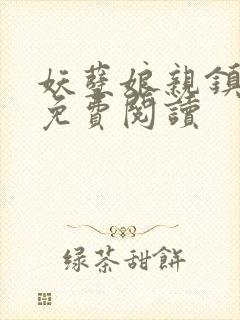 妖孽娘親鎮
免費閱讀
绿茶甜餅